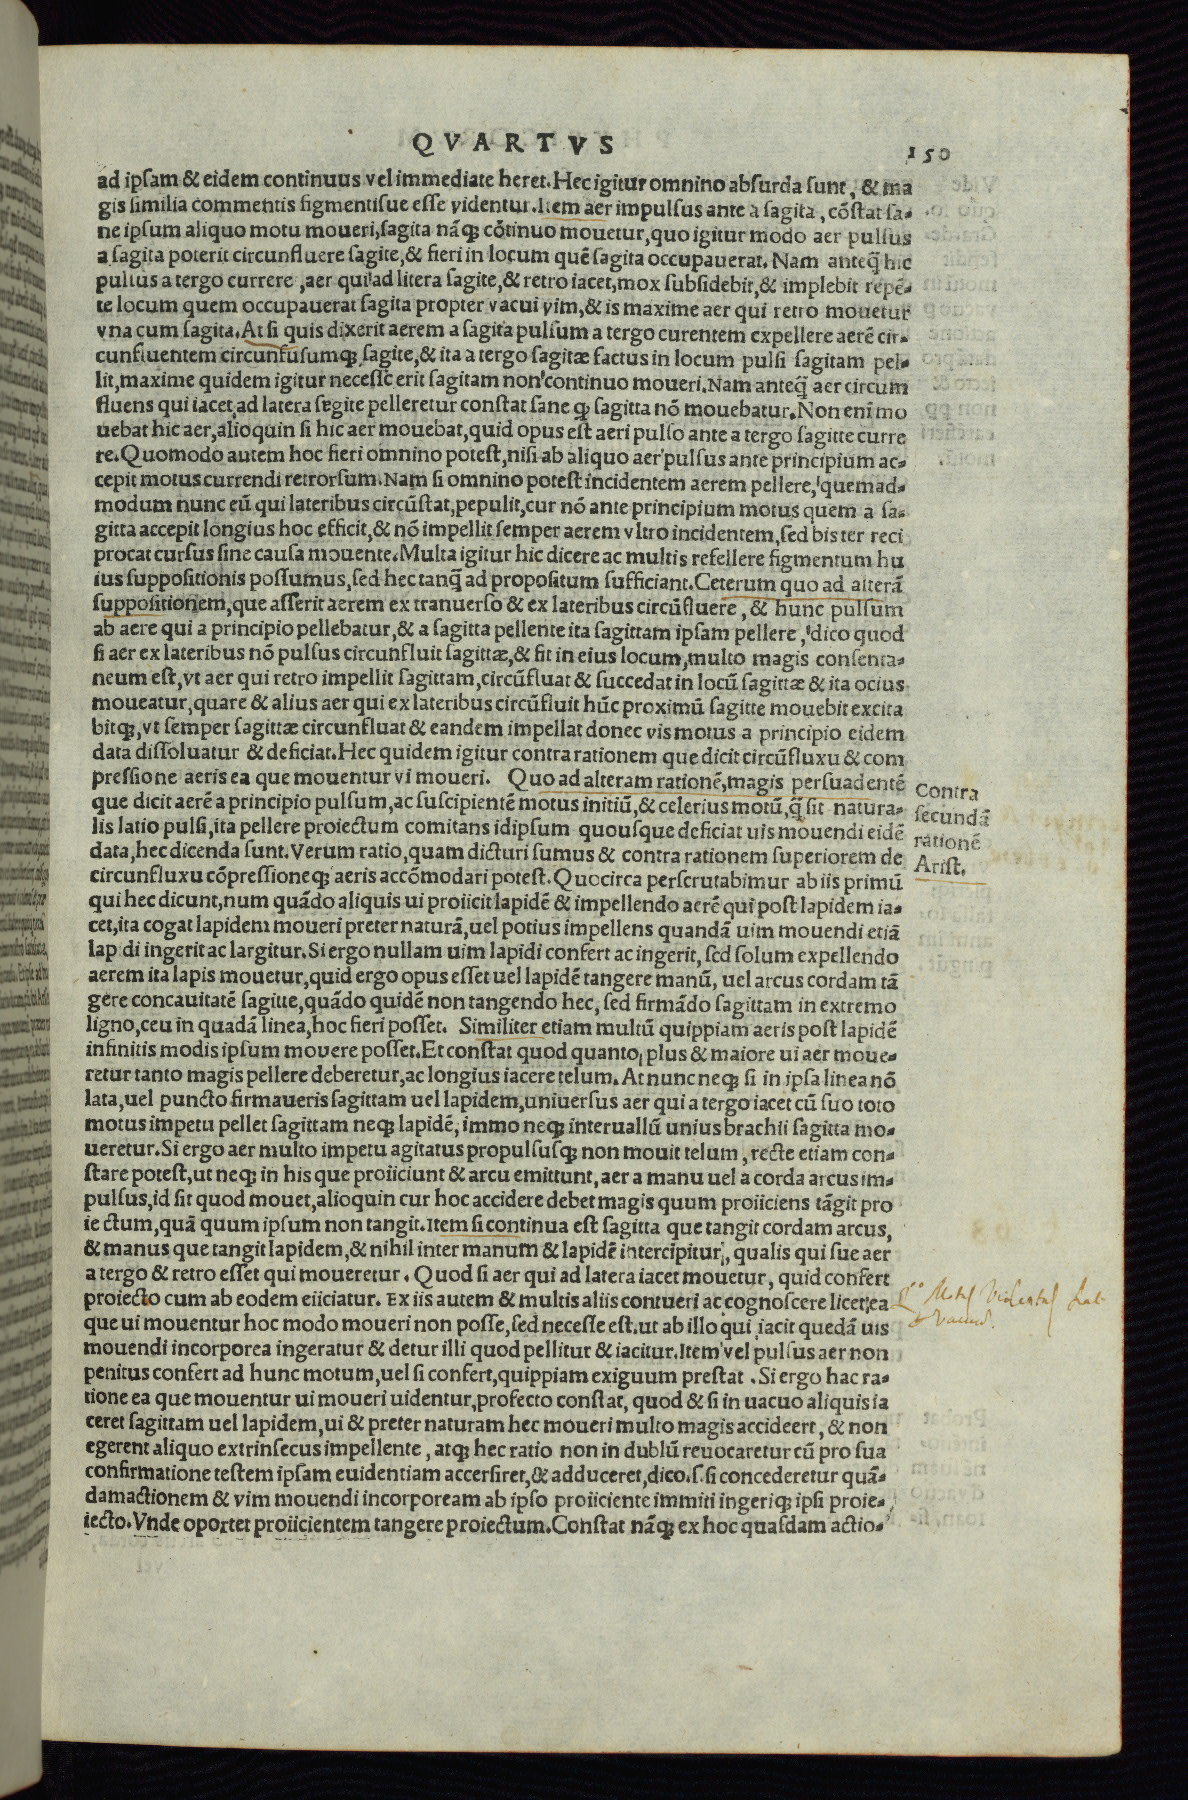 QVARTVS
150
ad ipsam & eidem continuus vel immediate heret. Hec igitur omnino absurda sunt, & ma
gis similia commentis figmentisue esse videntur. Item aer impulsus ante a sagita, cõstat sa-
ne ipsum aliquo motu moueri, sagita nãq; cõtinuo mouetur, quo igitur modo aer pulsus
a sagita poterit circunfluere sagite, & fieri in locum quẽ sagita occupauerat. Nam anteq̃ hic
pulsus a tergo currere, aer qui ad litera sagite, & retro iacet, mox subsidebit, & implebit repẽ-
te locum quem occupauerat sagita propter vacui vim, & is maxime aer qui retro mouetur
vna cum sagita. At si quis dixerit aerem a sagita pulsum a tergo curentem expellere aerẽ cir-
cunfluentem circunfusumq; sagite, & ita a tergo sagitæ factus in locum pulsi sagitam pel-
lit, maxime quidem igitur necesse erit sagitam non continuo moueri. Nam anteq̃ aer circum
fluens qui iacet ad latera segite pelleretur constat sane q; sagitta nõ mouebatur. Non eni mo
uebat hic aer, alioquin si hic aer mouebat, quid opus est aeri pulso ante a tergo sagitte curre
re. Quomodo autem hoc fieri omnino potest, nisi ab aliquo aer pulsus ante principium ac-
cepit motus currendi retrorsum. Nam si omnino potest incidentem aerem pellere, quemad-
modum nunc eũ qui lateribus circũstat, pepulit, cur nõ ante principium motus quem a sa-
gitta accepit longius hoc efficit, & nõ impellit semper aerem vltro incidentem, sed bis ter reci
procat cursus sine causa mouente. Multa igitur hic dicere ac multis refellere figmentum hu
ius suppositionis possumus, sed hec tanq̃ ad propositum sufficiant. Ceterum quo ad alterã
suppositionem, que asserit aerem ex tranuerso & ex lateribus circũfluere, & hunc pulsum
ab aere qui a principio pellebatur, & a sagitta pellente ita sagittam ipsam pellere, dico quod
si aer ex lateribus nõ pulsus circunfluit sagittæ, & fit in eius locum, multo magis consenta-
neum est, vt aer qui retro impellit sagittam, circũfluat & succedat in locũ sagittæ & ita ocius
moueatur, quare & alius aer qui ex lateribus circũfluit hũc proximũ sagitte mouebit excita
bitq;, vt semper sagittæ circunfluat & eandem impellat donec vis motus a principio eidem
data dissoluatur & deficiat. Hec quidem igitur contra rationem que dicit circũfluxu & com
pressione aeris ea que mouentur vi moueri. Quo ad alteram rationẽ, magis persuadentẽ
que dicit aerẽ a principio pulsum, ac suscipientẽ motus initiũ, & celerius motũ, q̃ sit natura-
lis latio pulsi, ita pellere proiectum comitans idipsum quousque deficiat uis mouendi eidẽ
data, hec dicenda sunt. Verum ratio, quam dicturi sumus & contra rationem superiorem de
circunfluxu cõpressioneq; aeris accõmodari potest. Quocirca perscrutabimur ab iis primũ
qui hec dicunt, num quãdo aliquis ui proiicit lapidẽ & impellendo aerẽ qui post lapidem ia-
cet, ita cogat lapidem moueri preter naturã, uel potius impellens quandã uim mouendi etiã
lap di ingerit ac largitur. Si ergo nullam uim lapidi confert ac ingerit, sed solum expellendo
aerem ita lapis mouetur, quid ergo opus esset uel lapidẽ tangere manũ, uel arcus cordam tã
gere concauitatẽ sagitte, quãdo quidẽ non tangendo hec, sed firmãdo sagittam in extremo
ligno, ceu in quadã linea, hoc fieri posset. Similiter etiam multũ quippiam aeris post lapidẽ
infinitis modis ipsum mouere posset. Et constat quod quanto plus & maiore ui aer moue-
retur tanto magis pellere deberetur, ac longius iacere telum. At nunc neq; si in ipsa linea nõ
lata, uel puncto firmaueris sagittam uel lapidem, uniuersus aer qui a tergo iacet cũ suo toto
motus impetu pellet sagittam neq; lapidẽ, immo neq; interuallũ unius brachii sagitta mo-
ueretur. Si ergo aer multo impetu agitatus propulsusq; non mouit telum, recte etiam con-
stare potest, ut neq; in his que proiiciunt & arcu emittunt, aer a manu uel a corda arcus im-
pulsus, id sit quod mouet, alioquin cur hoc accidere debet magis quum proiiciens tãgit pro
ie ctum, quã quum ipsum non tangit. Item si continua est sagitta que tangit cordam arcus,
& manus que tangit lapidem, & nihil inter manum & lapidẽ intercipitur, qualis qui sue aer
a tergo & retro esset qui moueretur. Quod si aer qui ad latera iacet mouetur, quid confert
proiecto cum ab eodem eiiciatur. Ex iis autem & multis aliis contueri ac cognoscere licet, ea
que ui mouentur hoc modo moueri non posse, sed necesse est, ut ab illo qui iacit quedã uis
mouendi incorporea ingeratur & detur illi quod pellitur & iacitur. Item vel pulsus aer non
penitus confert ad hunc motum, uel si confert, quippiam exiguum prestat. Si ergo hac ra-
tione ea que mouentur ui moueri uidentur, profecto constat, quod & si in uacuo aliquis ia
ceret sagittam uel lapidem, ui & preter naturam hec moueri multo magis accideert, & non
egerent aliquo extrinsecus impellente, atq; hec ratio non in dubiũ reuocaretur cũ pro sua
confirmatione testem ipsam euidentiam accersiret, & adduceret, dico. s. si concederetur quã-
damactionem & vim mouendi incorpoream ab ipso proiiciente immiti ingeriq; ipsi proie-
iecto. Vnde oportet proiicientem tangere proiectum. Constat nãq; ex hoc quasdam actio-
Contra
secundã
rationẽ
Arist.